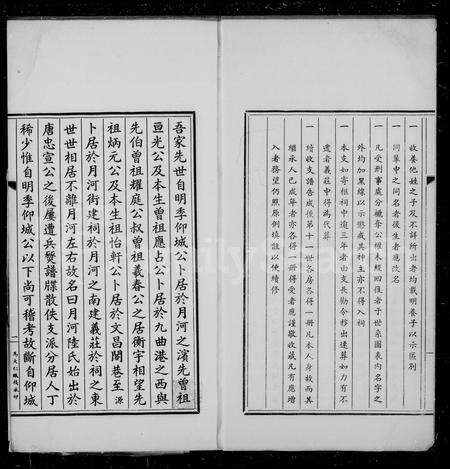 一 收養他姓之子及不詳所出者均載明養子以示區別
一 同輩中之同名者後生者應改名
一 凡受刑事處分褫奪公權未經回復者于世系圖表內名字之
外均加黑線以示懲戒其神主亦不得入祠
一 本支如有寄祖祠中逾三年者由支長勒令移出違葬如力有不
逮者義莊中得為代葬
一 續收支譜告成後第十一世各房各得一冊凡本人身故而其
繼承人已成年者亦各得一冊得受者應謹敬收藏凡有應增
入者務望仍照原例填註以便續修
吾家先世自明季仰城公卜居於月河之濱先曾祖
亘光公及本生曾祖應占公卜居於九曲港之西與
先伯曾祖耀庭公叔曾祖羲春公之居衡宇相望先
祖炳元公及本生祖怡軒公卜居於文昌閣巷至源
卜居於月河街建祠於月河之南建義莊於祠之東
世世相居不離月河左右故名曰月河陸氏始出於
唐忠宣公之後屢遭兵燹譜牒散佚支派分居人丁
稀少惟自明季仰城公以下尚可稽考故斷自仰城